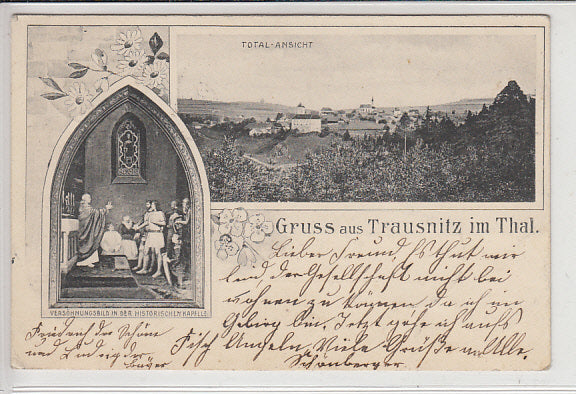 TOTAL-ANSICHT
Gruss aus Trausnitz im Thal.
VERSÖHNUNGSBILD IN DER HISTORISCHEN KAPELLE
Lieber Freund, Es thut mir
leid der Gesellschaft nicht bei
wohnen zu können da ich im
Gebirg bin. Jetzt gehe ich aufs
Fisch Angeln, Viele Grüße an Alle.
Schönberger
Friedrich der Schöne
und Ludwig der
Bayer